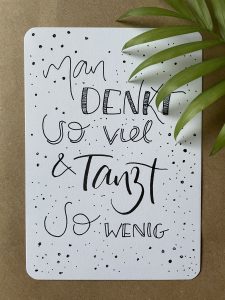 Man
DENKT
so viel
& Tanzt
so WENIG